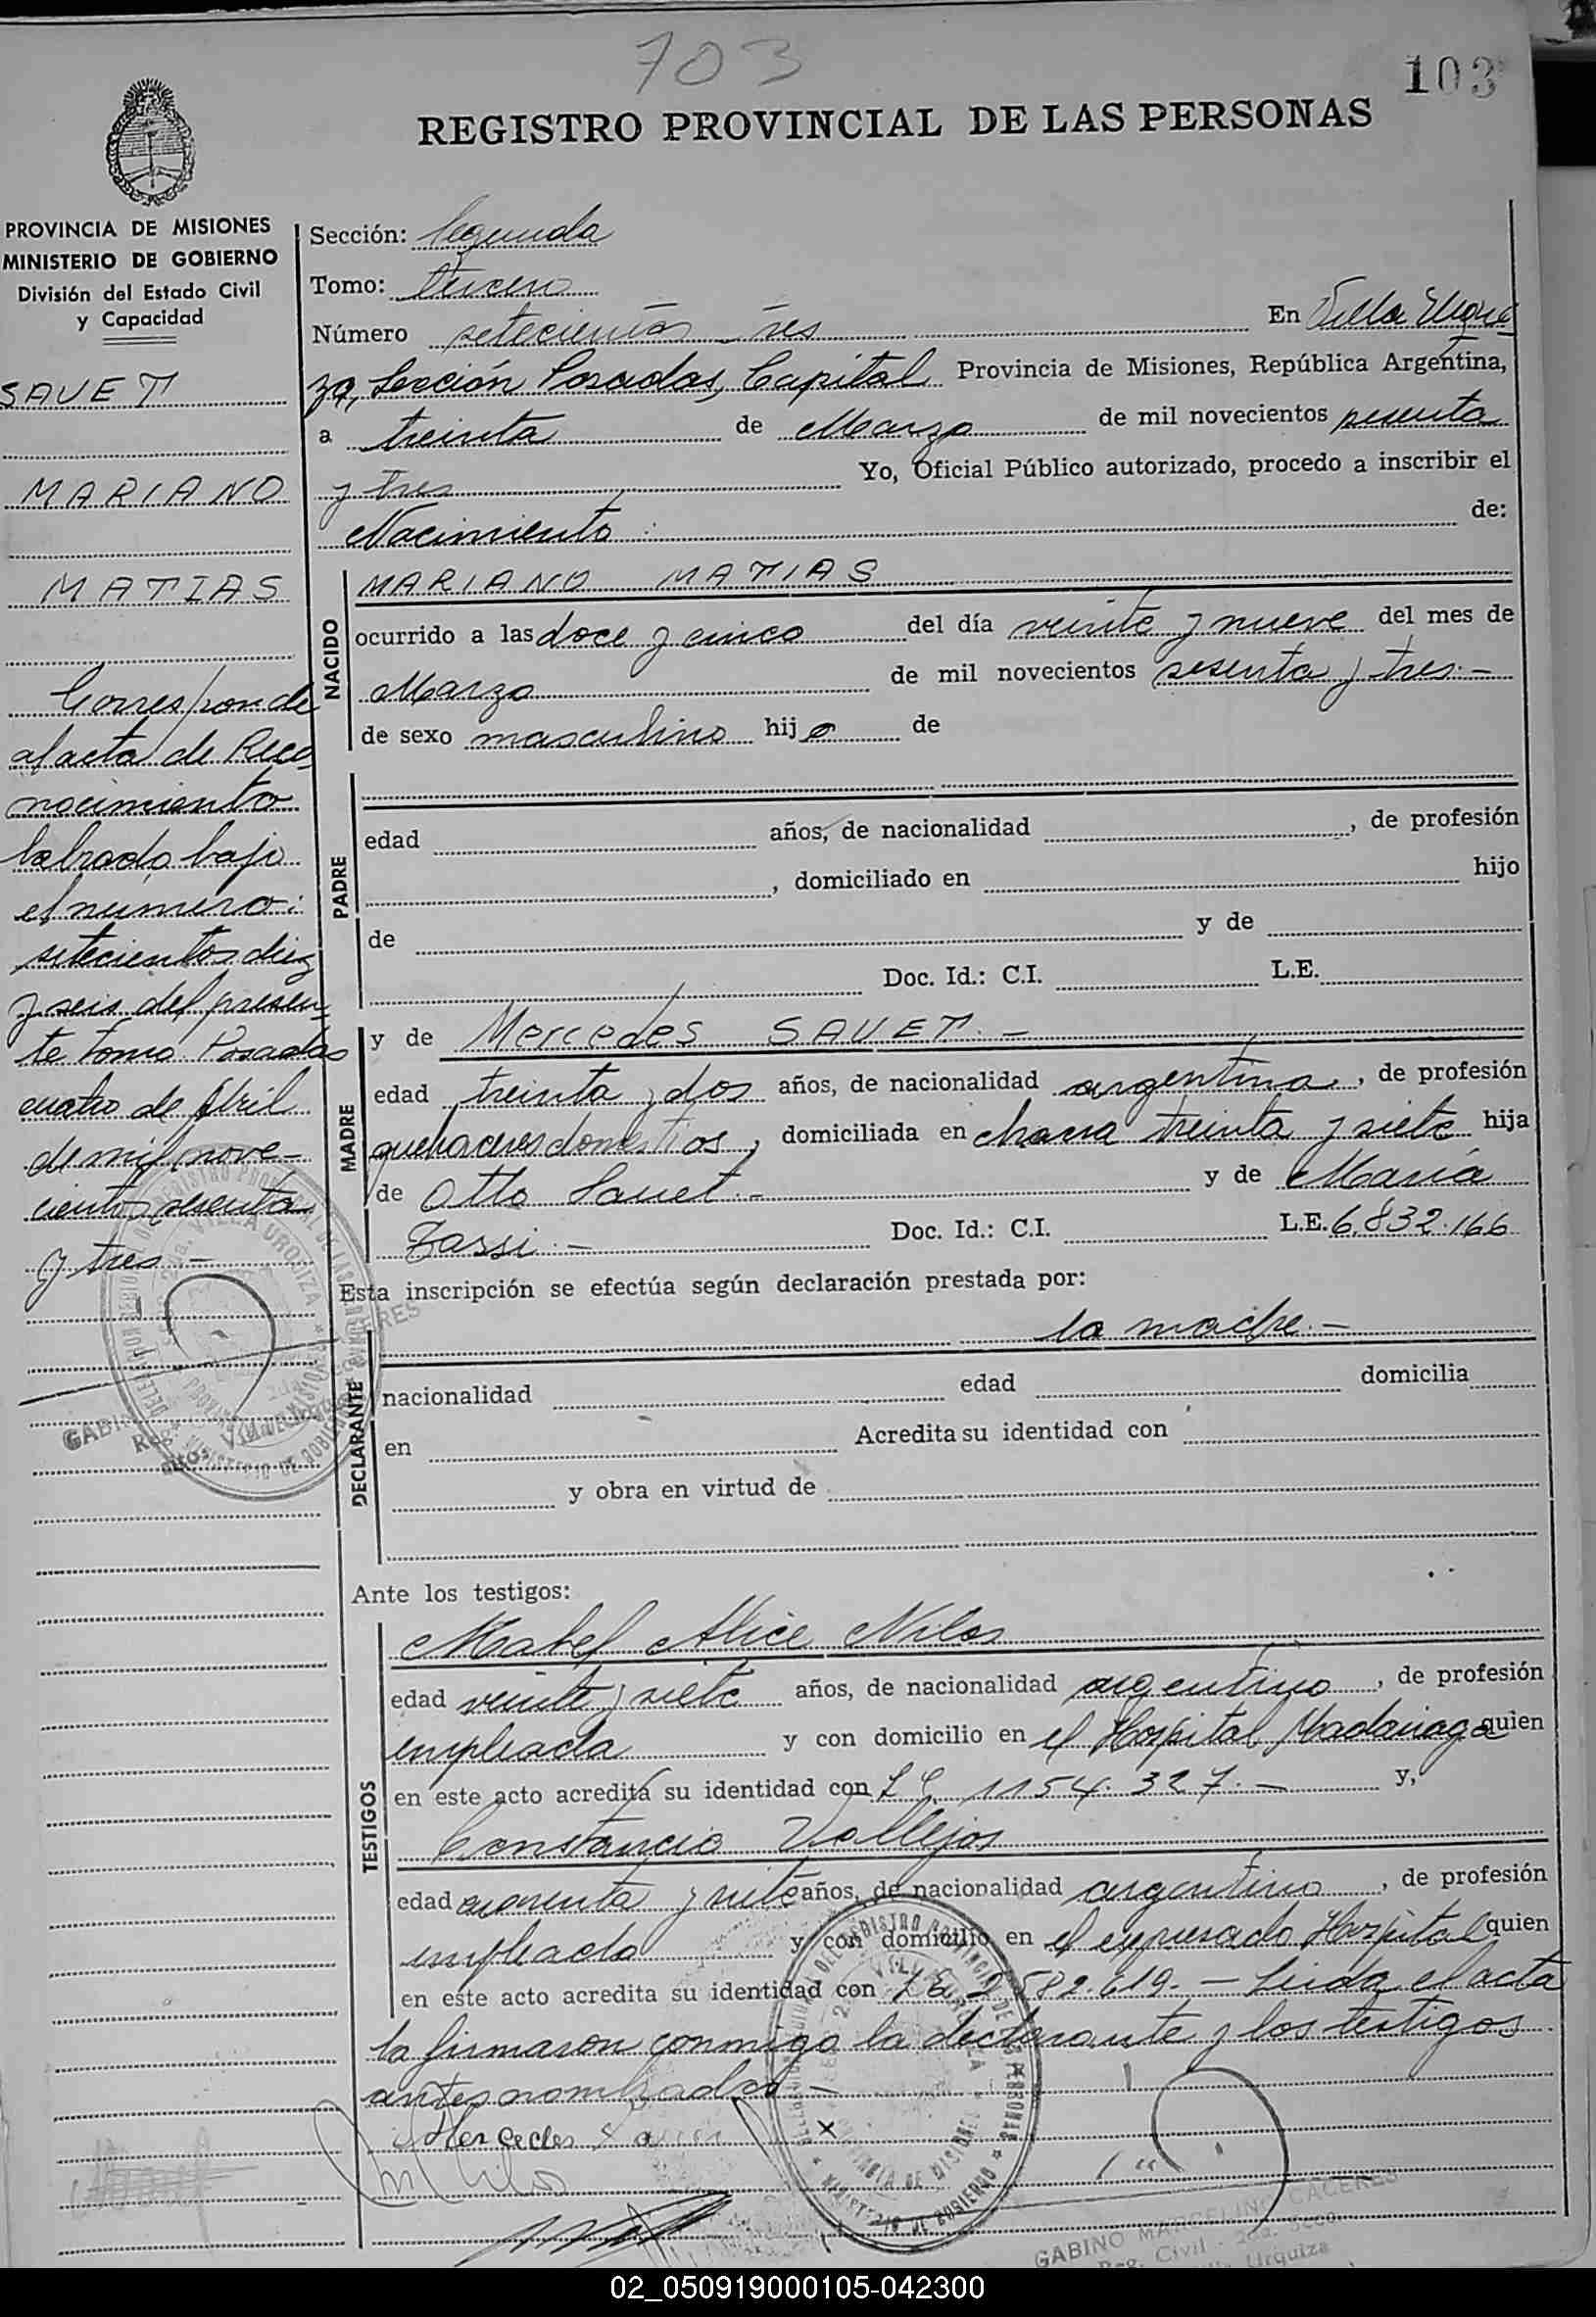 703
103
REGISTRO PROVINCIAL DE LAS PERSONAS
PROVINCIA DE MISIONES
MINISTERIO DE GOBIERNO
División del Estado Civil
y Capacidad
SAUET
MARIANO
MATIAS
Corresponde
al acta de Reco
nocimiento
labrada bajo
el número:
setecientos diez
y seis del presen
te tomo Posadas
cuatro de Abril
de mil nove-
cientos sesenta
y tres -
Sección: Segunda
Tomo: tercero
Número setecientos tres En Villa Urqui
za, Sección Posadas, Capital Provincia de Misiones, República Argentina,
a treinta de Marzo de mil novecientos sesenta
y tres Yo, Oficial Público autorizado, procedo a inscribir el
Nacimiento: de:
NACIDO
MARIANO MATIAS
ocurrido a las doce y cinco del día veinte y nueve del mes de
Marzo de mil novecientos sesenta y tres.-
de sexo masculino hijo de
PADRE
edad años, de nacionalidad , de profesión
, domiciliado en hijo
de y de
Doc. Id.: C.I. L.E.
MADRE
y de Mercedes SAUET.-
edad treinta y dos años, de nacionalidad argentina, de profesión
quehaceres domesticos, domiciliada en chacra treinta y siete hija
de Otto Sauet.- y de María
Zassi.- Doc. Id.: C.I. L.E. 6.832.166
Esta inscripción se efectúa según declaración prestada por:
la madre.-
DECLARANTE
nacionalidad edad domicilia
en Acredita su identidad con
y obra en virtud de
Ante los testigos:
TESTIGOS
Mabel Alice Nilos
edad veinte y siete años, de nacionalidad argentina, de profesión
empleada y con domicilio en el Hospital Madariaga quien
en este acto acredita su identidad con 1154.327.- y,
Constancio Vallejos
edad cuarenta y siete años, de nacionalidad argentino, de profesión
empleado y con domicilio en el expresado Hospital quien
en este acto acredita su identidad con 2582.619.- Leida el acta
la firmaron conmigo la declarante y los testigos
antes nombrados -
Mercedes
GABINO MARCELINO CACERES
Reg. Civil - 2da. Secc.
Villa Urquiza
02_050919000105-042300